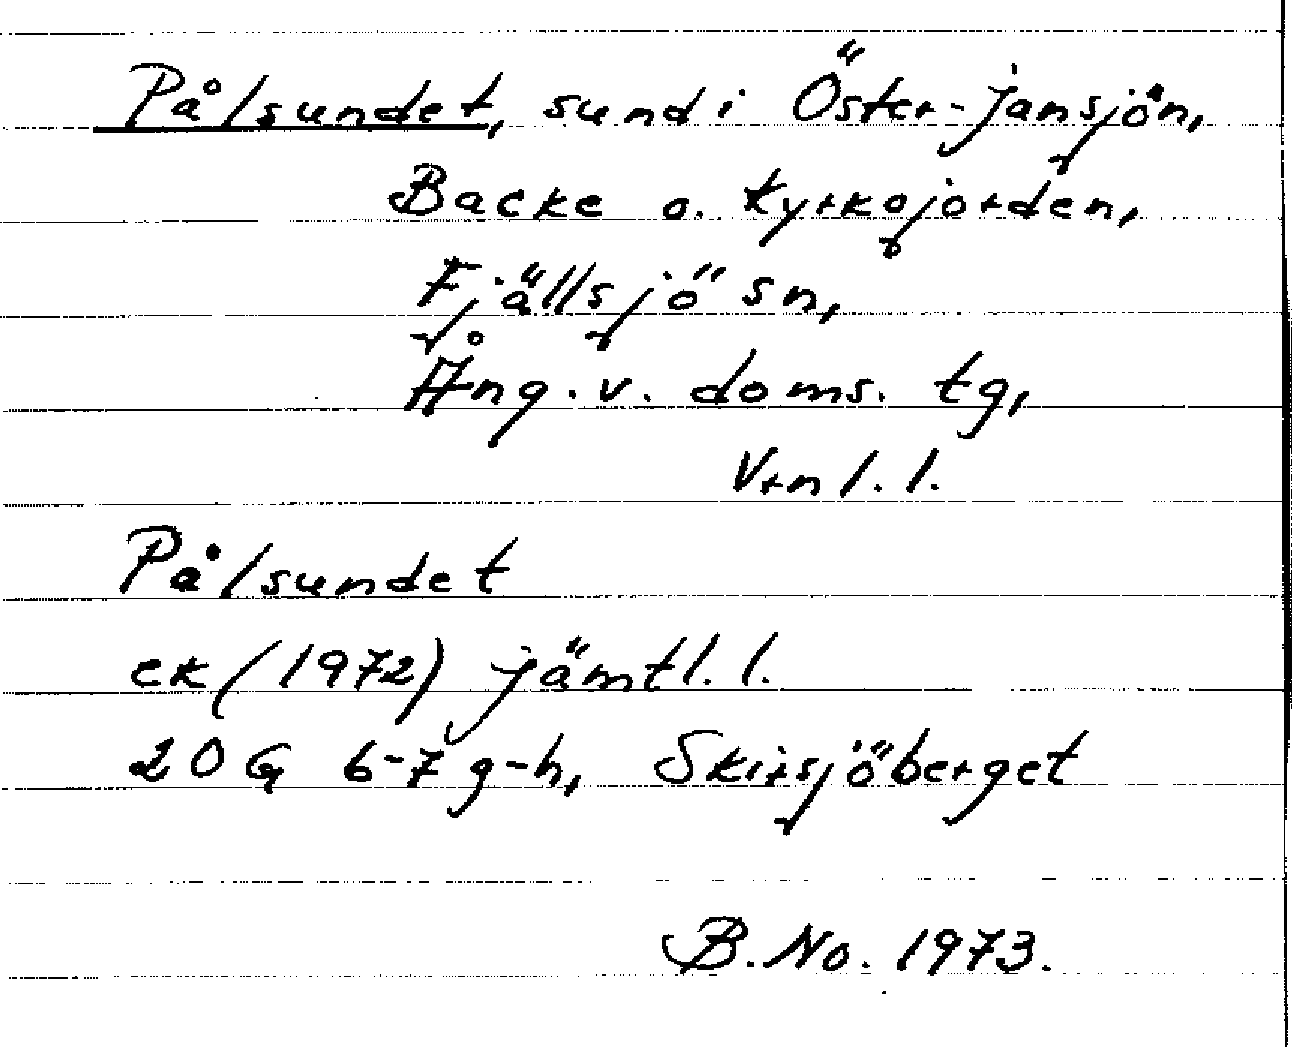 Pålsundet, sund i Öster-Jansjön,
Backe o. Kyrkojorden,
Fjällsjö sn,
Ång. v. doms. tg,
Vrnl. l.
Pålsundet
ek (1972) jämtl. l.
20 G 6-7 g-h, Skirsjöberget
B. No. 1973.